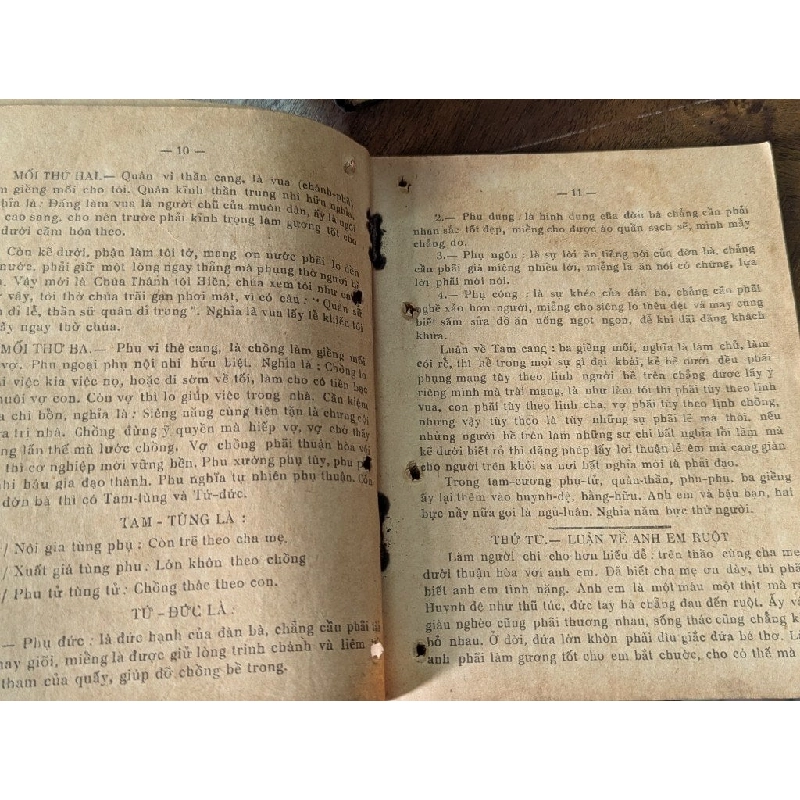 — 10 —
MỐI THỨ HAI.— Quân vi thần cang, là vua (chánh-phủ,
làm giềng mối cho tôi. Quân kính thần trung nhi hữu nghĩa.
nghĩa là: Đấng làm vua là người chủ của muôn dân, ấy là ngôi
cao sang, cho nên trước phải kính trọng làm gương tốt cho
dưới cãm hóa theo.
Còn kẽ dưới, phận làm tôi tớ, mang ơn nước phải lo đền
nước, phải giữ một lòng ngay thẳng mà phụng thờ người bề
. Vậy mới là Chúa Thánh tôi Hiền, chúa xem tôi như
vậy, tôi thờ chúa trãi gan phơi mật, vì có câu: “Quân sễ
n dĩ lễ, thần sữ quân dĩ trung”. Nghĩa là vua lấy lễ khiến tôi
ấy ngay thờ chúa.
MỐI THỨ BA.— Phu vi thê cang, là chồng làm giềng mối
vợ. Phu ngoại phụ nội nhi hữu biệt. Nghĩa là: Chồng lo
i việc kia việc nọ, hoặc đi sớm về tối, làm cho có tiền bạc
nuôi vợ con. Còn vợ thì lo giúp việc trong nhà. Cần kiệm
chi bồn, nghĩa là: Siêng năng cùng tiện tặn là chưng cội
a trị nhà. Chồng đừng ỷ quyền mà hiếp vợ, vợ chớ thấy
ng lấn thế mà lước chồng. Vợ chồng phãi thuận hòa với
thì cơ nghiệp mới vững bền. Phu xướng phụ tùy, phu
hi hậu gia đạo thành. Phu nghĩa tự nhiên phụ thuận. Còn
đờn bà thì có Tam-tùng và Tứ-đức.
TAM - TÙNG LÀ :
/ Nội gia tùng phụ : Còn trẽ theo cha mẹ.
/ Xuất giá tùng phu : Lớn khôn theo chồng
/ Phu tử tùng tử : Chồng thác theo con.
TỨ - ĐỨC LÀ :
— Phụ đức : là đức hạnh của đàn bà, chẳng cầu phải tài
hay giỏi, miễng là được giữ lòng trinh chánh và liêm
tham của quấy, giúp đỡ chồng bề trong.
— 11 —
2.— Phụ dung : là hình dung của đờn bà chẳng cần phải
nhan sắc tốt đẹp, miễng cho được áo quần sạch sẽ, mình mẩy
chẳng dơ.
3.— Phụ ngôn : là sự lời ăn tiếng nói của đờn bà, chẳng
cần phải già miệng nhiều lời, miễng là ăn nói có chừng, lựa
lời phải mới nói.
4.— Phụ công : là sự khéo của đàn bà, chẳng cần phải
nghề xão hơn người, miễng cho siêng lo thêu dệt và may cùng
biết sắm sửa đồ ăn uống ngọt ngon, để khi đãi đằng khách
khứa.
Luận về Tam cang : ba giềng mối, nghĩa là làm chủ, làm
cội rể, thì hể trong mọi sự gì đại khái, kẽ bề dưới đều phải
phụng mạng tùy theo lịnh người bề trên chẳng được lấy ý
riêng mình mà trái mạng, là như làm tôi thì phải tùy theo lịnh
vua, con phải tùy theo lịnh cha, vợ phải tùy theo lịnh chồng,
nhưng vậy tùy theo là tùy những sự phải lẽ mà thôi, nếu
những người bề trên làm những sự chi bất nghĩa lỗi lầm mà
kẽ dưới biết rõ thì dặng phép lấy lời thuận lẽ êm mà cang gián
cho người trên khỏi sa nơi bất nghĩa mới là phải đạo.
Trong tam-cương phụ-tử, quân-thần, phu-phụ, ba giềng
ấy lại thêm vào huynh-đệ, bằng-hữu. Anh em và bậu bạn, hai
bực nầy nữa gọi là ngũ-luân. Nghĩa năm bực thử người.
THỨ TƯ.— LUẬN VỀ ANH EM RUỘT
Làm người chi cho hơn hiếu đễ : trên thảo cùng cha mẹ
dưới thuận hòa với anh em. Đã biết cha mẹ ơn dày, thì phả
biết anh em tình nặng. Anh em là một máu một thịt mà r
Huynh đệ như thũ túc, đức tay hà chẳng đau đến ruột. Ấy v
giàu nghèo cũng phải thương nhau, sống thác cũng chẳng k
bỏ nhau. Ở đời, đứa lớn khôn phải dìu giắc đứa bé thơ. Là
anh phãi làm gương tốt cho em bắt chước, cho có thế mà